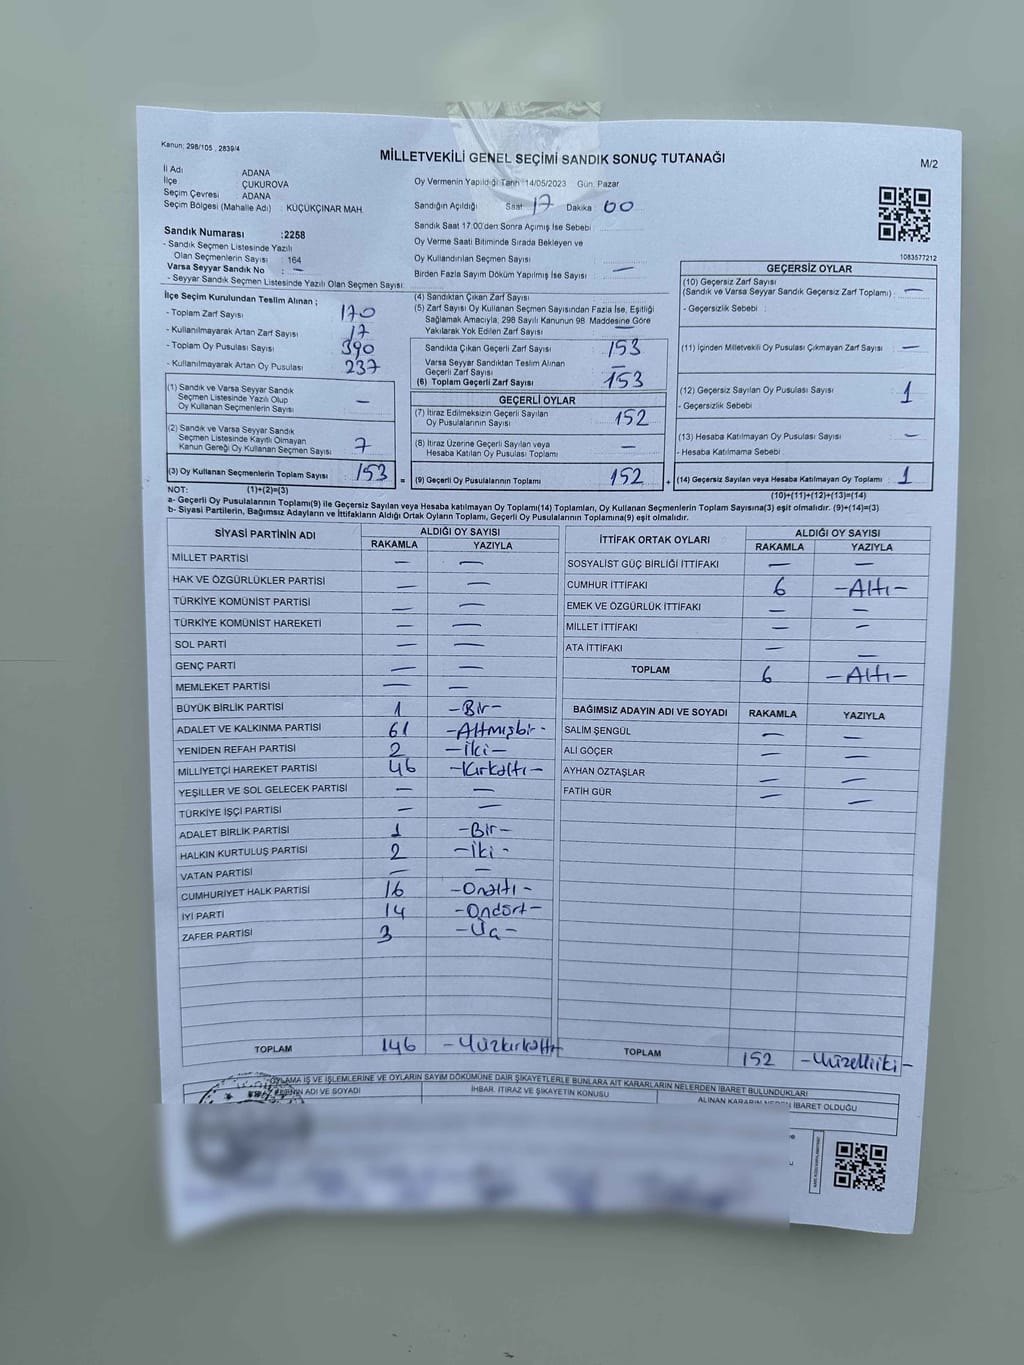 Kanun; 298/105 , 2839/4
MİLLETVEKİLİ GENEL SEÇİMİ SANDIK SONUÇ TUTANAĞI
M/2
İl Adı ADANA
İlçe ÇUKUROVA
Seçim Çevresi ADANA
Seçim Bölgesi (Mahalle Adı) : KÜÇÜKÇINAR MAH.
Oy Vermenin Yapıldığı Tarih :14/05/2023 Gün: Pazar
Sandığın Açıldığı Saat 17 Dakika 00
Sandık Saat 17:00'den Sonra Açımış İse Sebebi :
Oy Verme Saati Bitiminde Sırada Bekleyen ve
Oy Kullandırılan Seçmen Sayısı
Birden Fazla Sayım Döküm Yapılmış İse Sayısı : —
1083577212
Sandık Numarası :2258
- Sandık Seçmen Listesinde Yazılı
Olan Seçmenlerin Sayısı : 164
Varsa Seyyar Sandık No : —
- Seyyar Sandık Seçmen Listesinde Yazılı Olan Seçmen Sayısı:
İlçe Seçim Kurulundan Teslim Alınan ;
- Toplam Zarf Sayısı 170
- Kullanılmayarak Artan Zarf Sayısı 17
- Toplam Oy Pusulası Sayısı 390
- Kullanılmayarak Artan Oy Pusulası 237
(1) Sandık ve Varsa Seyyar Sandık
Seçmen Listesinde Yazılı Olup
Oy Kullanan Seçmenlerin Sayısı —
(2) Sandık ve Varsa Seyyar Sandık
Seçmen Listesinde Kayıtlı Olmayan
Kanun Gereği Oy Kullanan Seçmen Sayısı 7
(3) Oy Kullanan Seçmenlerin Toplam Sayısı 153
(4) Sandıktan Çıkan Zarf Sayısı :
(5) Zarf Sayısı Oy Kullanan Seçmen Sayısından Fazla İse, Eşitliği
Sağlamak Amacıyla, 298 Sayılı Kanunun 98. Maddesine Göre
Yakılarak Yok Edilen Zarf Sayısı —
Sandıkta Çıkan Geçerli Zarf Sayısı 153
Varsa Seyyar Sandıktan Teslim Alınan
Geçerli Zarf Sayısı —
(6) Toplam Geçerli Zarf Sayısı 153
GEÇERLİ OYLAR
(7) İtiraz Edilmeksizin Geçerli Sayılan
Oy Pusulalarının Sayısı 152
(8) İtiraz Üzerine Geçerli Sayılan veya
Hesaba Katılan Oy Pusulası Toplamı —
= (9) Geçerli Oy Pusulalarının Toplamı 152
GEÇERSİZ OYLAR
(10) Geçersiz Zarf Sayısı
(Sandık ve Varsa Seyyar Sandık Geçersiz Zarf Toplamı) —
- Geçersizlik Sebebi :
(11) İçinden Milletvekili Oy Pusulası Çıkmayan Zarf Sayısı —
(12) Geçersiz Sayılan Oy Pusulası Sayısı 1
- Geçersizlik Sebebi
(13) Hesaba Katılmayan Oy Pusulası Sayısı —
- Hesaba Katılmama Sebebi
+ (14) Geçersiz Sayılan veya Hesaba Katılmayan Oy Toplamı : 1
NOT: (1)+(2)=(3)
(10)+(11)+(12)+(13)=(14)
a- Geçerli Oy Pusulalarının Toplamı(9) ile Geçersiz Sayılan veya Hesaba katılmayan Oy Toplamı(14) Toplamları, Oy Kullanan Seçmenlerin Toplam Sayısına(3) eşit olmalıdır. (9)+(14)=(3)
b- Siyasi Partilerin, Bağımsız Adayların ve İttifakların Aldığı Ortak Oyların Toplamı, Geçerli Oy Pusulalarının Toplamına(9) eşit olmalıdır.
SİYASİ PARTİNİN ADI ALDIĞI OY SAYISI
RAKAMLA YAZIYLA
MİLLET PARTİSİ — —
HAK VE ÖZGÜRLÜKLER PARTİSİ — —
TÜRKİYE KOMÜNİST PARTİSİ — —
TÜRKİYE KOMÜNİST HAREKETİ — —
SOL PARTİ — —
GENÇ PARTİ — —
MEMLEKET PARTİSİ — —
BÜYÜK BİRLİK PARTİSİ 1 -Bir-
ADALET VE KALKINMA PARTİSİ 61 -Altmışbir-
YENİDEN REFAH PARTİSİ 2 -İki-
MİLLİYETÇİ HAREKET PARTİSİ 46 -Kırkaltı-
YEŞİLLER VE SOL GELECEK PARTİSİ — —
TÜRKİYE İŞÇİ PARTİSİ — —
ADALET BİRLİK PARTİSİ 1 -Bir-
HALKIN KURTULUŞ PARTİSİ 2 -İki-
VATAN PARTİSİ — —
CUMHURİYET HALK PARTİSİ 16 -Onaltı-
İYİ PARTİ 14 -Ondört-
ZAFER PARTİSİ 3 -Üç-
TOPLAM 146 -Yüzkırkaltı-
İTTİFAK ORTAK OYLARI ALDIĞI OY SAYISI
RAKAMLA YAZIYLA
SOSYALİST GÜÇ BİRLİĞİ İTTİFAKI — —
CUMHUR İTTİFAKI 6 -Altı-
EMEK VE ÖZGÜRLÜK İTTİFAKI — —
MİLLET İTTİFAKI — —
ATA İTTİFAKI — —
TOPLAM 6 -Altı-
BAĞIMSIZ ADAYIN ADI VE SOYADI RAKAMLA YAZIYLA
SALİM ŞENGÜL — —
ALİ GÖÇER — —
AYHAN ÖZTAŞLAR — —
FATİH GÜR — —
TOPLAM 152 -Yüzelliiki-
OYLAMA İŞ VE İŞLEMLERİNE VE OYLARIN SAYIM DÖKÜMÜNE DAİR ŞİKAYETLERLE BUNLARA AİT KARARLARIN NELERDEN İBARET BULUNDUKLARI
ADI VE SOYADI İHBAR, İTİRAZ VE ŞİKAYETİN KONUSU ALINAN KARARIN NEDEN İBARET OLDUĞU